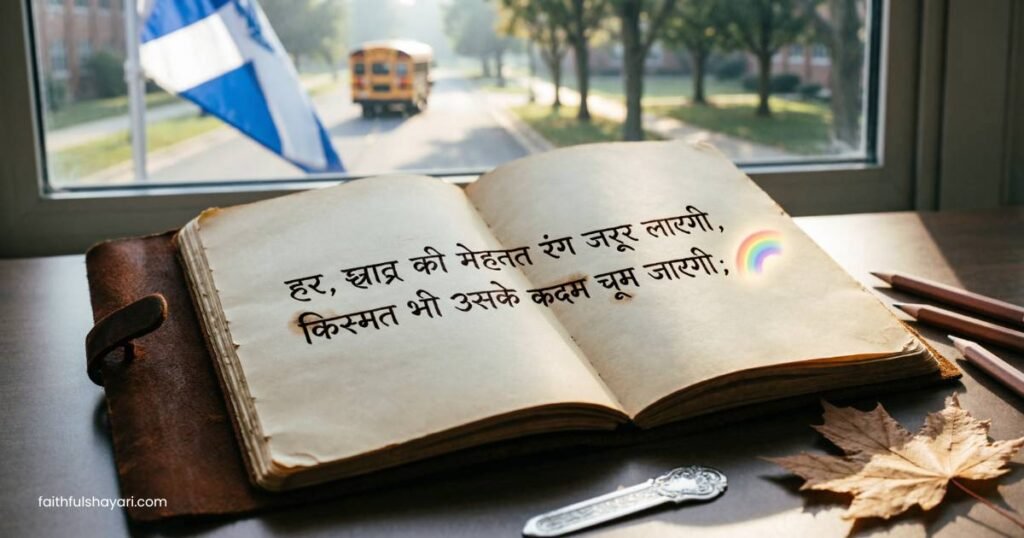 हर, छात्र की मेहतत रंग जरूर लाएगी,
किस्मत भी उसके कदम चूम जाएगी;
faithfulshayari.com